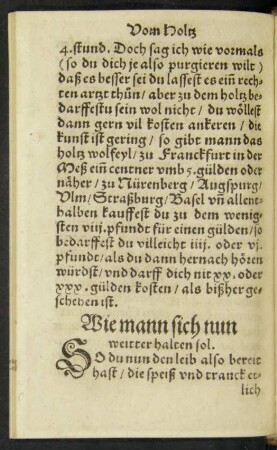 Vom Holtz
4.stund. Doch sag ich wie vormals
(so du dich je also purgieren wilt)
daß es besser sei du lassest es eiñ rech-
ten artzt thůn/ aber zu dem holtz be-
darffestu sein wol nicht/ du wöllest
dann gern vil kosten ankeren/ die
kunst ist gering/ so gibt mann das
holtz wolfeyl/ zu Franckfurt in der
Meß ein centner vmb 5.gülden oder
näher/ zu Nürenberg/ Augspurg/
Vlm/ Straßburg/ Basel vñ allent-
halben kauffest du zu dem wenig-
sten viij.pfundt für einen gülden/ so
bedarffest du villeicht iiij. oder vj.
pfundt/ als du dann hernach hören
würdst/ vnd darff dich nit xx. oder
xxx. gülden kosten/ als bißher ge-
schehen ist.
Wie mann sich nun
weitter halten sol.
SO du nun den leib also bereit
hast/ die speiß vnd tranck et-
lich